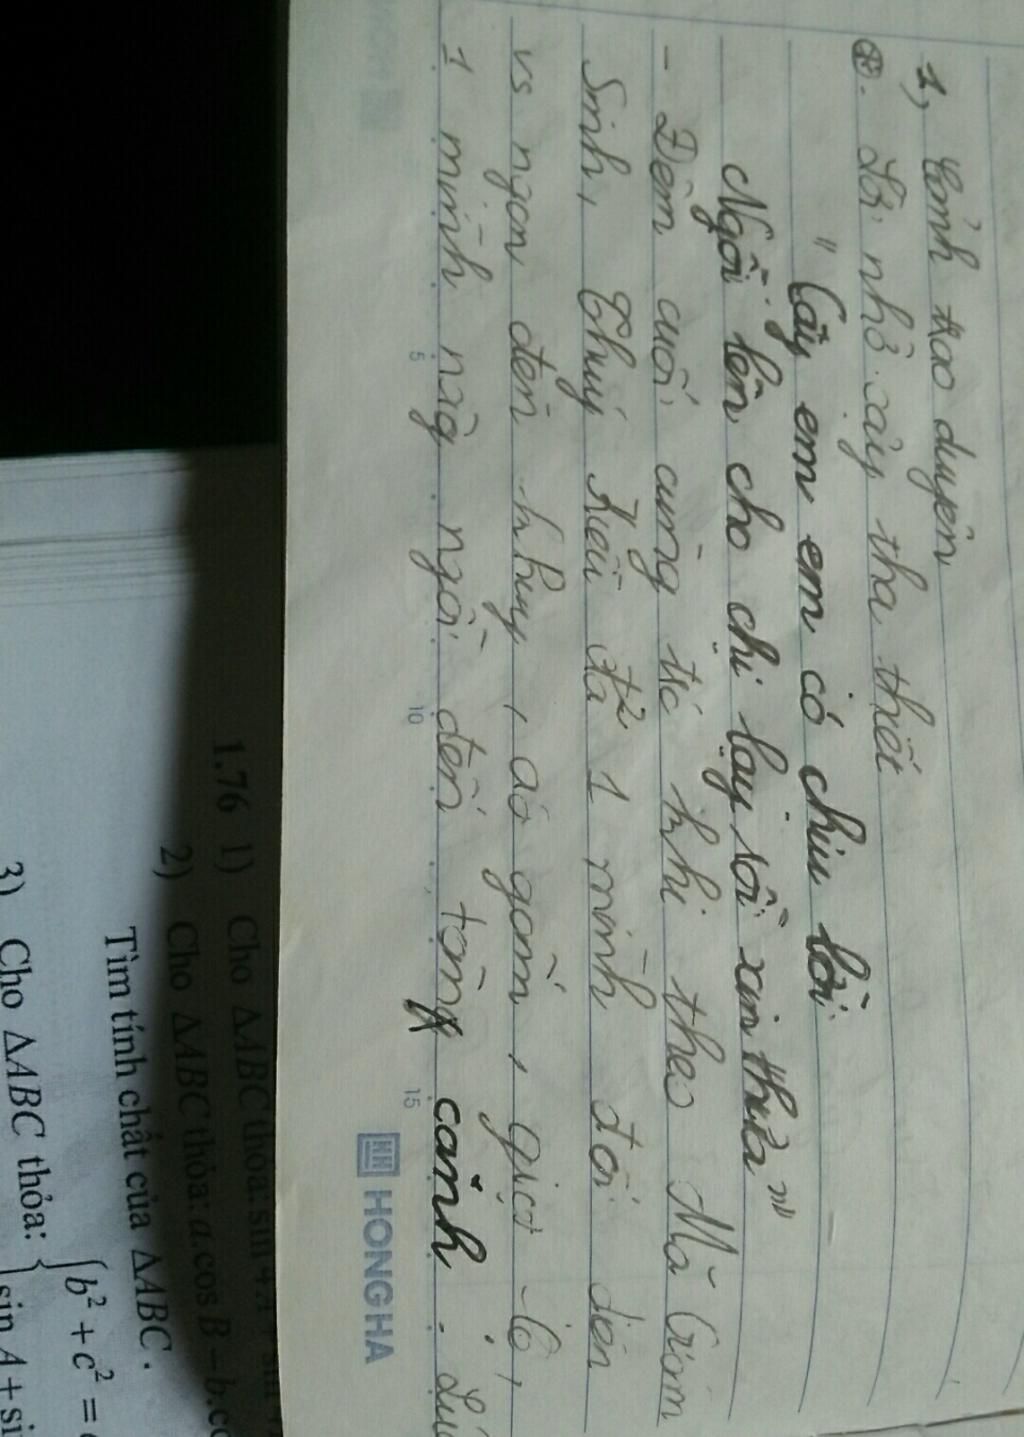 1, Cảnh trao duyên
⊛. Lời nhờ cậy tha thiết
" Cậy em em có chịu lời
Ngồi lên cho chị lạy rồi sẽ thưa "
- Đêm cuối cùng trc khi theo Mã Giám
Sinh, Thuý Kiều đã 1 mình đối diện
vs ngọn đèn khuya, áo gấm, giọt lệ,
1 mình nàng ngồi đến tàn canh. Lúc
5 10 15
HONG HA
1.76 1) Cho ΔABC thỏa: sin
2) Cho ΔABC thỏa: a.cos B − b.co
Tìm tính chất của ΔABC.
3) Cho ΔABC thỏa: { b² + c² =
sin A + si